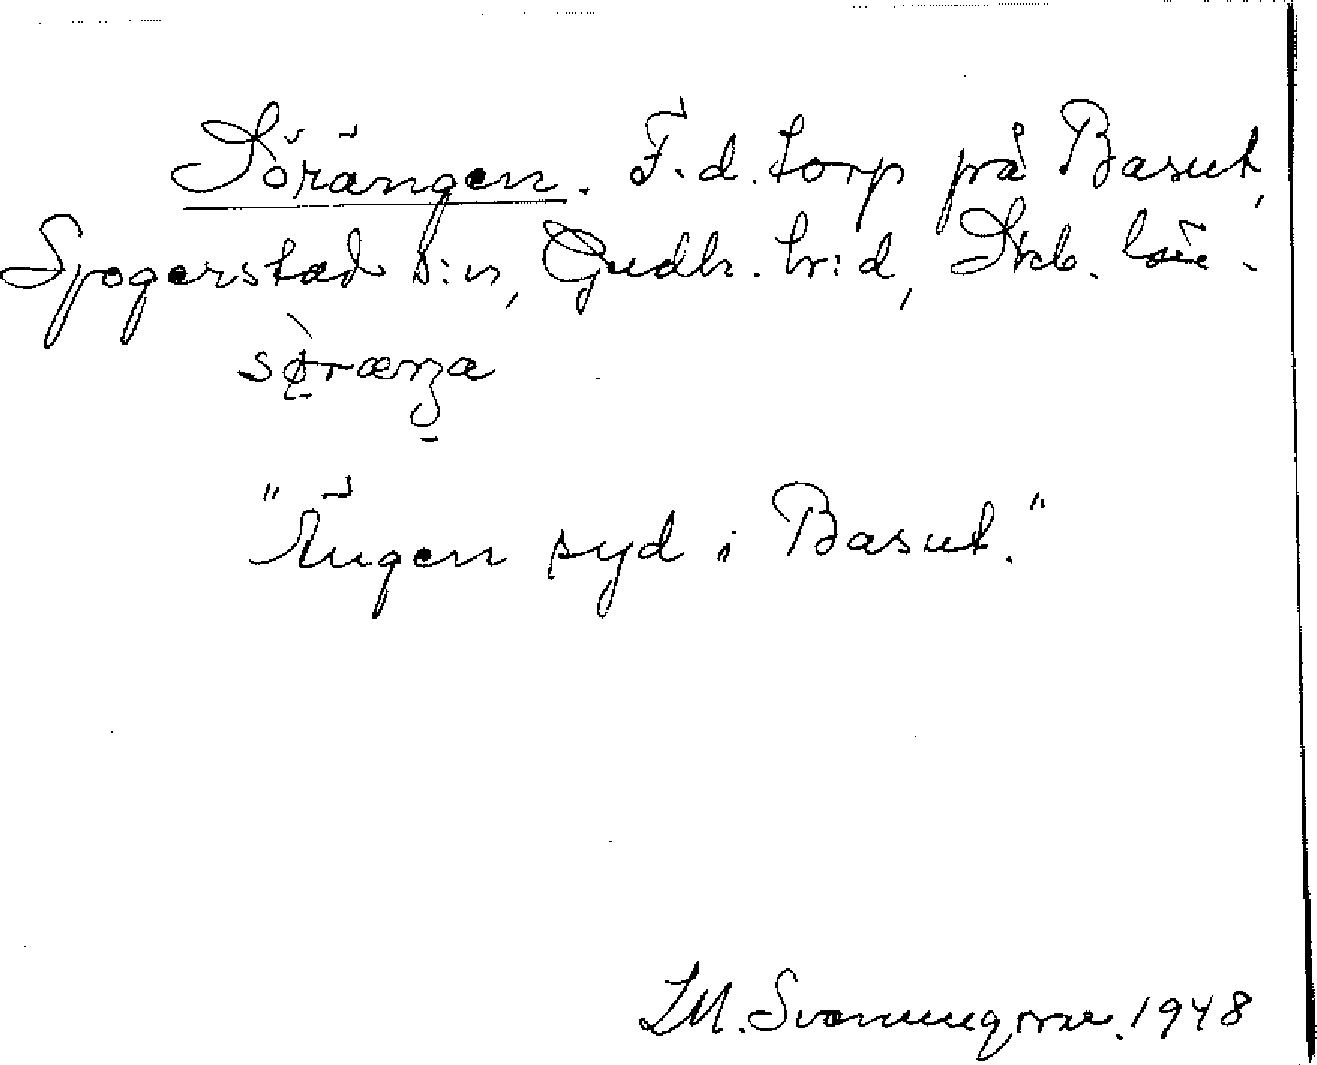 Sörängen. F.d. torp på Basut,
Sjogerstad s:n, Gudh. h:d, Skb. län.
"Ängen syd i Basut."
I.M. Svanungsson. 1948